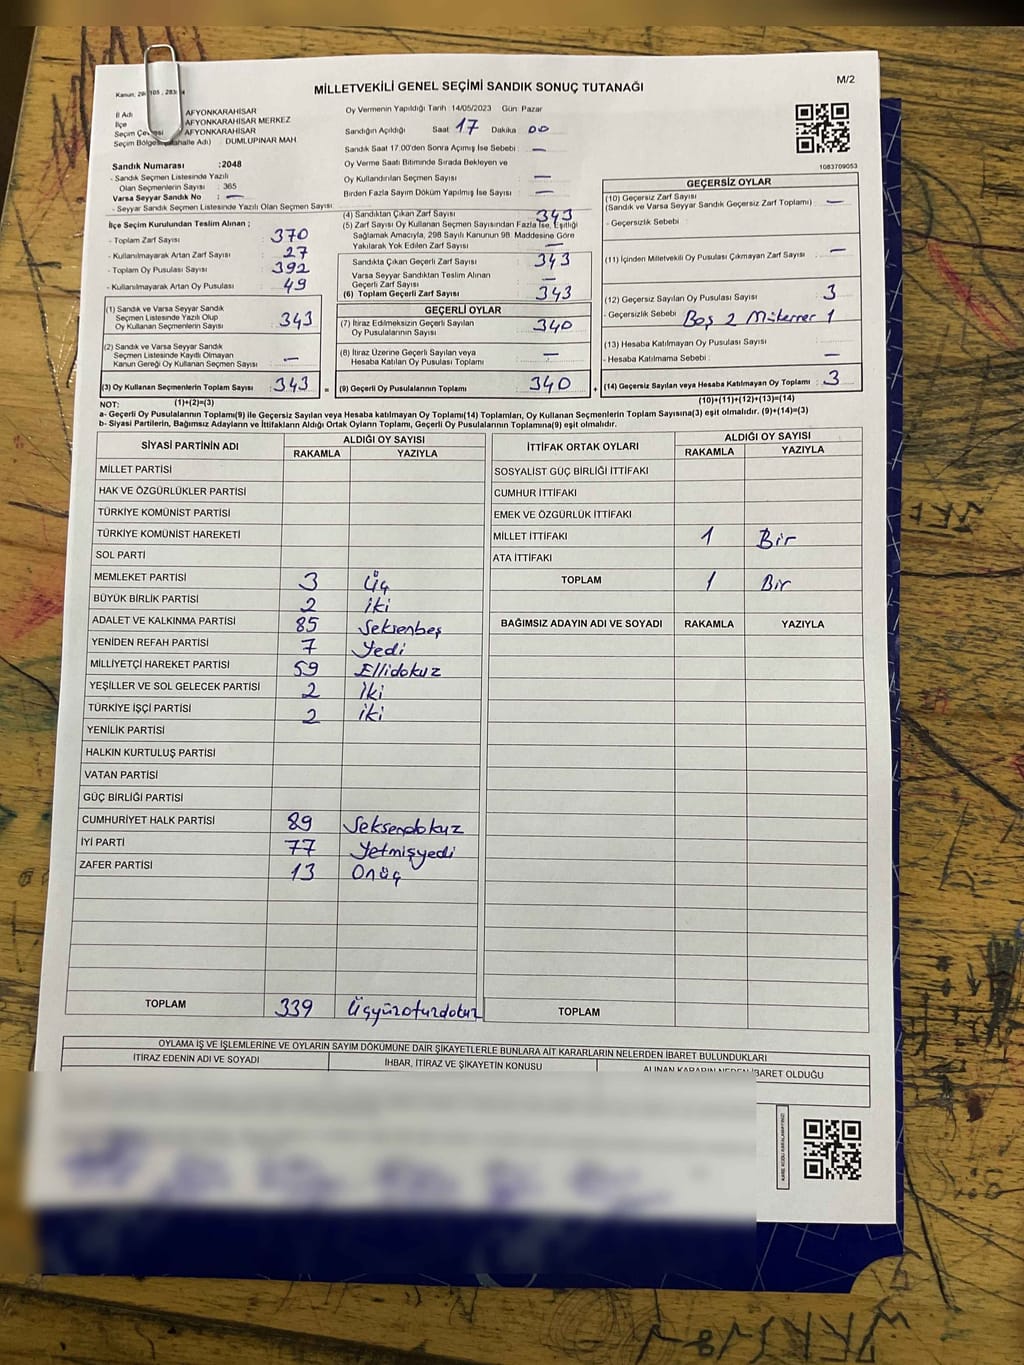 M/2
MİLLETVEKİLİ GENEL SEÇİMİ SANDIK SONUÇ TUTANAĞI
İl Adı AFYONKARAHİSAR
İlçe AFYONKARAHİSAR MERKEZ
AFYONKARAHİSAR
DUMLUPINAR MAH
Sandık Numarası :2048
- Sandık Seçmen Listesinde Yazılı
Olan Seçmenlerin Sayısı : 365
Varsa Seyyar Sandık No : —
- Seyyar Sandık Seçmen Listesinde Yazılı Olan Seçmen Sayısı:
Oy Vermenin Yapıldığı Tarih :14/05/2023 Gün: Pazar
Sandığın Açıldığı Saat 17 Dakika 00
Sandık Saat 17.00'den Sonra Açılmış İse Sebebi : —
Oy Verme Saati Bitiminde Sırada Bekleyen ve
Oy Kullandırılan Seçmen Sayısı —
Birden Fazla Sayım Döküm Yapılmış İse Sayısı : —
1083709053
İlçe Seçim Kurulundan Teslim Alınan ;
- Toplam Zarf Sayısı 370
- Kullanılmayarak Artan Zarf Sayısı 27
- Toplam Oy Pusulası Sayısı 392
- Kullanılmayarak Artan Oy Pusulası 49
(1) Sandık ve Varsa Seyyar Sandık
Seçmen Listesinde Yazılı Olup
Oy Kullanan Seçmenlerin Sayısı 343
(2) Sandık ve Varsa Seyyar Sandık
Seçmen Listesinde Kayıtlı Olmayan
Kanun Gereği Oy Kullanan Seçmen Sayısı —
(3) Oy Kullanan Seçmenlerin Toplam Sayısı 343 =
(4) Sandıktan Çıkan Zarf Sayısı 343
(5) Zarf Sayısı Oy Kullanan Seçmen Sayısından Fazla İse, Eşitliği
Sağlamak Amacıyla, 298 Sayılı Kanunun 98. Maddesine Göre
Yakılarak Yok Edilen Zarf Sayısı —
Sandıkta Çıkan Geçerli Zarf Sayısı 343
Varsa Seyyar Sandıktan Teslim Alınan
Geçerli Zarf Sayısı —
(6) Toplam Geçerli Zarf Sayısı 343
GEÇERLİ OYLAR
(7) İtiraz Edilmeksizin Geçerli Sayılan
Oy Pusulalarının Sayısı 340
(8) İtiraz Üzerine Geçerli Sayılan veya
Hesaba Katılan Oy Pusulası Toplamı —
(9) Geçerli Oy Pusulalarının Toplamı 340 +
GEÇERSİZ OYLAR
(10) Geçersiz Zarf Sayısı
(Sandık ve Varsa Seyyar Sandık Geçersiz Zarf Toplamı) —
- Geçersizlik Sebebi
(11) İçinden Milletvekili Oy Pusulası Çıkmayan Zarf Sayısı —
(12) Geçersiz Sayılan Oy Pusulası Sayısı 3
- Geçersizlik Sebebi Boş 2 Mükerrer 1
(13) Hesaba Katılmayan Oy Pusulası Sayısı
- Hesaba Katılmama Sebebi : —
(14) Geçersiz Sayılan veya Hesaba Katılmayan Oy Toplamı 3
NOT: (1)+(2)=(3) (10)+(11)+(12)+(13)=(14)
a- Geçerli Oy Pusulalarının Toplamı(9) ile Geçersiz Sayılan veya Hesaba Katılmayan Oy Toplamı(14) Toplamları, Oy Kullanan Seçmenlerin Toplam Sayısına(3) eşit olmalıdır. (9)+(14)=(3)
b- Siyasi Partilerin, Bağımsız Adayların ve İttifakların Aldığı Ortak Oyların Toplamı, Geçerli Oy Pusulalarının Toplamına(9) eşit olmalıdır.
SİYASİ PARTİNİN ADI ALDIĞI OY SAYISI
RAKAMLA YAZIYLA
MİLLET PARTİSİ
HAK VE ÖZGÜRLÜKLER PARTİSİ
TÜRKİYE KOMÜNİST PARTİSİ
TÜRKİYE KOMÜNİST HAREKETİ
SOL PARTİ
MEMLEKET PARTİSİ 3 Üç
BÜYÜK BİRLİK PARTİSİ 2 iki
ADALET VE KALKINMA PARTİSİ 85 Seksenbeş
YENİDEN REFAH PARTİSİ 7 Yedi
MİLLİYETÇİ HAREKET PARTİSİ 59 Ellidokuz
YEŞİLLER VE SOL GELECEK PARTİSİ 2 İki
TÜRKİYE İŞÇİ PARTİSİ 2 iki
YENİLİK PARTİSİ
HALKIN KURTULUŞ PARTİSİ
VATAN PARTİSİ
GÜÇ BİRLİĞİ PARTİSİ
CUMHURİYET HALK PARTİSİ 89 Seksendokuz
İYİ PARTİ 77 Yetmişyedi
ZAFER PARTİSİ 13 Onüç
TOPLAM 339 Üçyüzotuzdokuz
İTTİFAK ORTAK OYLARI ALDIĞI OY SAYISI
RAKAMLA YAZIYLA
SOSYALİST GÜÇ BİRLİĞİ İTTİFAKI
CUMHUR İTTİFAKI
EMEK VE ÖZGÜRLÜK İTTİFAKI
MİLLET İTTİFAKI 1 Bir
ATA İTTİFAKI
TOPLAM 1 Bir
BAĞIMSIZ ADAYIN ADI VE SOYADI RAKAMLA YAZIYLA
TOPLAM
OYLAMA İŞ VE İŞLEMLERİNE VE OYLARIN SAYIM DÖKÜMÜNE DAİR ŞİKAYETLERLE BUNLARA AİT KARARLARIN NELERDEN İBARET BULUNDUKLARI
İTİRAZ EDENİN ADI VE SOYADI İHBAR, İTİRAZ VE ŞİKAYETİN KONUSU ALINAN KARARIN NEDEN İBARET OLDUĞU